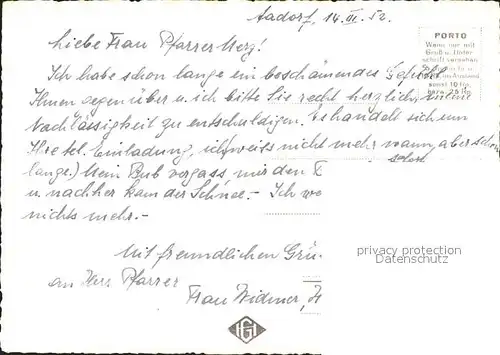 Aadorf, 14. III. 52.
Liebe Frau Pfarrer Merz!
Ich habe schon lange ein beschämendes Gefühl
Ihnen gegenüber u. ich bitte Sie recht herzlich, meine
Nachlässigkeit zu entschuldigen. Es handelt sich um
Ihre tel. Einladung, ich weiss nicht mehr wann, aber schon
lange.) Mein Bub vergass mir den
u. nachher kam der Schnee. - Ich
nichts mehr. -
Mit freundlichen Grü
an Herr Pfarrer
Frau Widmer,
PORTO
Wenn nur mit
Gruß u. Unter-
schrift versehen
sonst 10 Rp.
privacy protection
Datenschutz